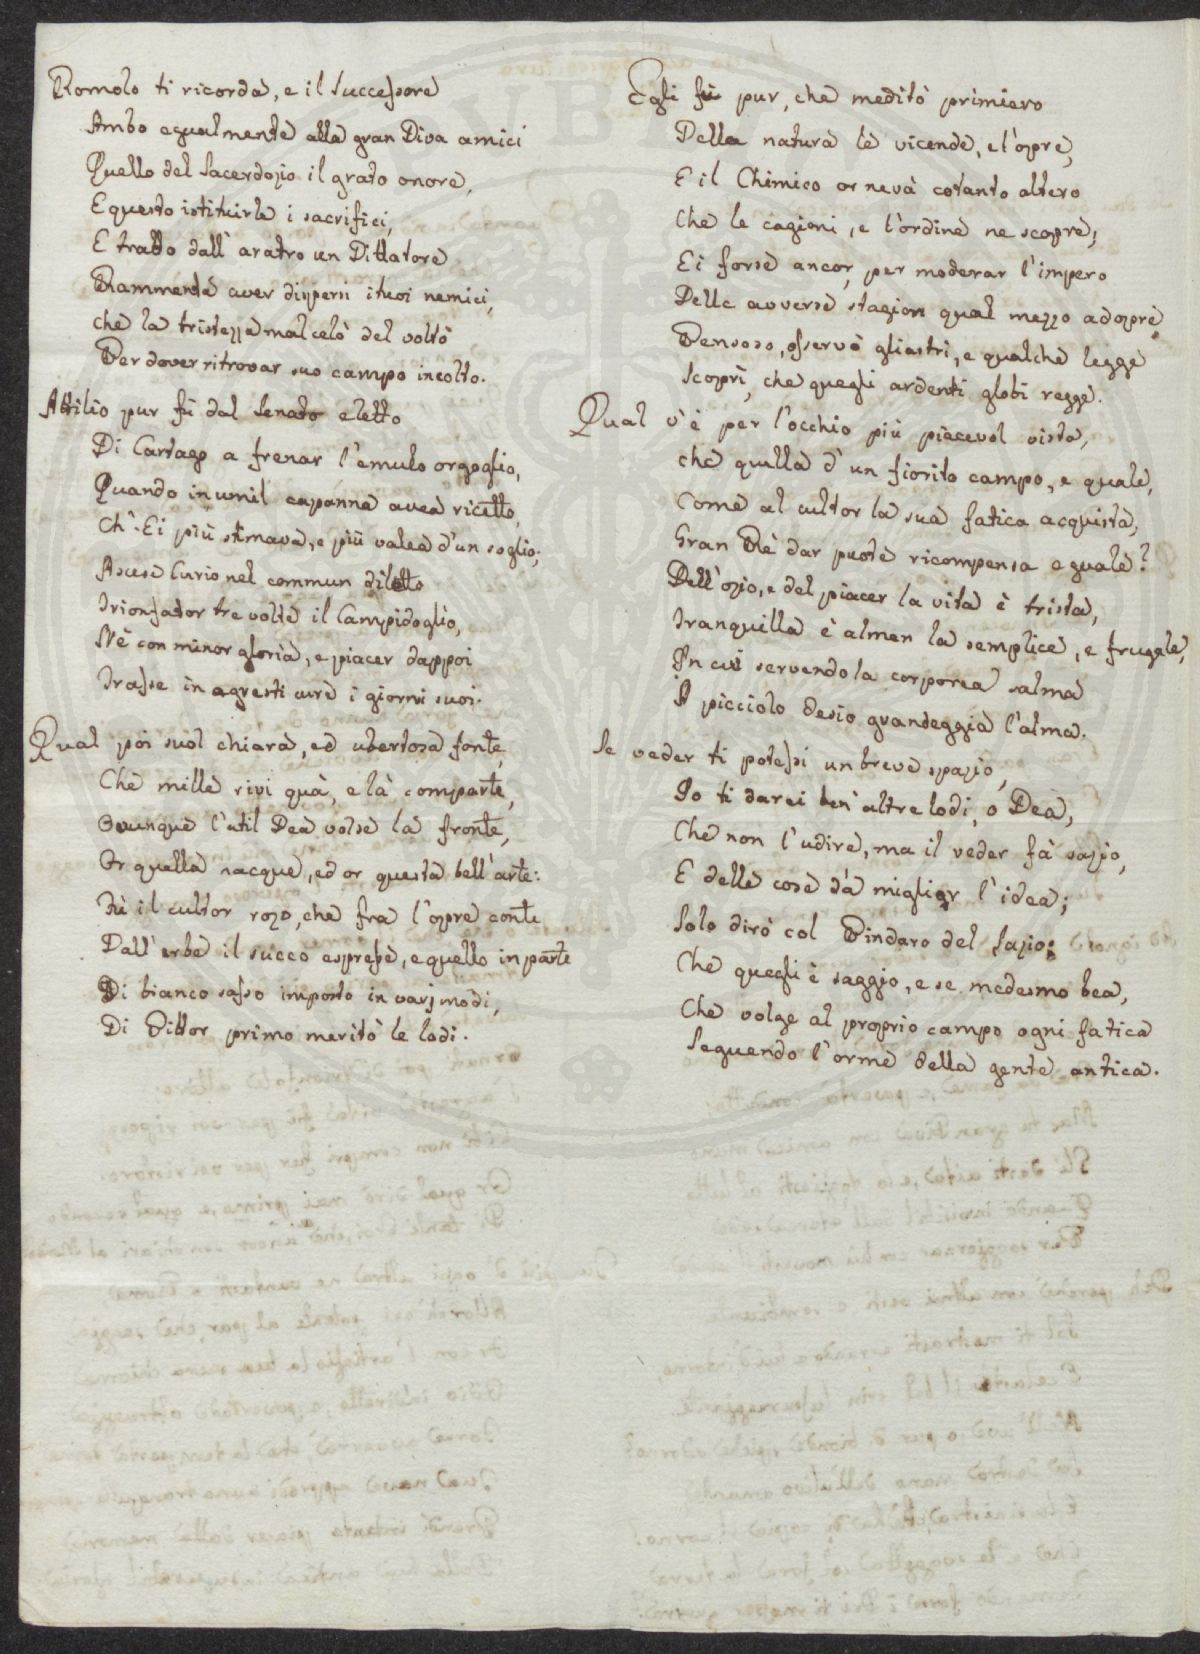 Romolo ti ricorda, e il Successore
Ambo egualmente alla gran Diva amici
Quello del Sacerdozio il grato onore,
E questo istituirle i sacrifici,
E tratto dall' aratro un Dittatore
Rammenta aver dispersi i tuoi nemici,
Che la tristezza mal celò del volto
Per dover ritrovar suo campo incolto.
Attilio pur fù dal Senato eletto
Di Cartago a frenar l'emulo orgoglio,
Quando in umil capanna avea ricetto,
Ch' Ei più stimava, e più valea d'un soglio;
Ascese Curio nel commun diletto
Trionfator tre volte il Campidoglio,
Nè con minor gloria, e piacer dappoi
Trasse in agresti cure i giorni suoi.
Qual poi suol chiara, ed ubertosa fonte,
Che mille rivi quà, e là comparte,
Ovunque l'util Dea volse la fronte,
Or quella nacque, ed or questa bell'arte:
Fù il cultor rozo, che fra l'opre conte
Dall' erbe il succo espresse, e quello in parte
Di bianco sasso imposto in varj modi,
Di Pittor primo meritò le lodi.
Egli fù pur, che meditò primiero
Della natura le vicende, e l'opre,
E il Chimico or nevà cotanto altero
Che le cagioni, e l'ordine ne scopre;
Ei forse ancor, per moderar l'impero
Delle avverse stagion qual mezzo adopre,
Pensoso, osservò gli astri, e qualche legge
Scoprì, che quegli ardenti globi regge.
Qual v'è per l'occhio più piacevol vista,
che quella d'un fiorito campo, e quale,
Come al cultor la sua fatica acquista,
Gran Rè dar puote ricompensa eguale?
Dell'ozio, e del piacer la vita è trista,
Tranquilla è almen la semplice, e frugale,
In cui servendo la corporea salma
A picciolo desio grandeggia l'alma.
Se veder ti potessi un breve spazio,
Io ti darei ben' altre lodi, o Dea,
Che non l'udire, ma il veder fà sazio,
E delle cose dà miglior l'idea;
Solo dirò col Pindaro del Lazio:
Che quegli è saggio, e se medesmo bea,
Che volge al proprio campo ogni fatica
Seguendo l'orme della gente antica.